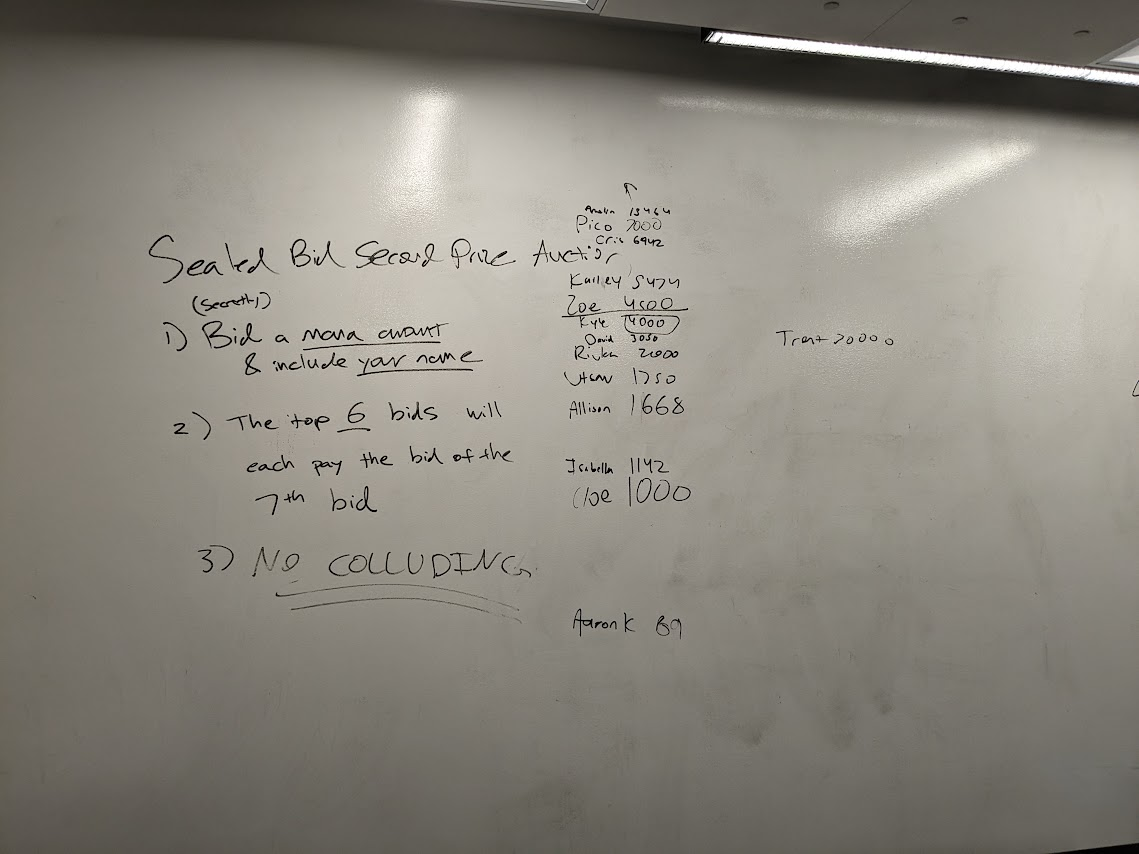 Sealed Bid Second Price Auction
(Secretly)
1) Bid a mana amount
& include your name
2) The top 6 bids will
each pay the bid of the
7th bid
3) NO COLLUDING
Austin 13464
Pico 7000
Cris 6942
Kailey 5474
Zoe 4500
Kyle 4000
David 3050
Rivka 2000
Utsav 1750
Allison 1668
Isabella 1142
Cloe 1000
Aaron K 89
Trent 20000